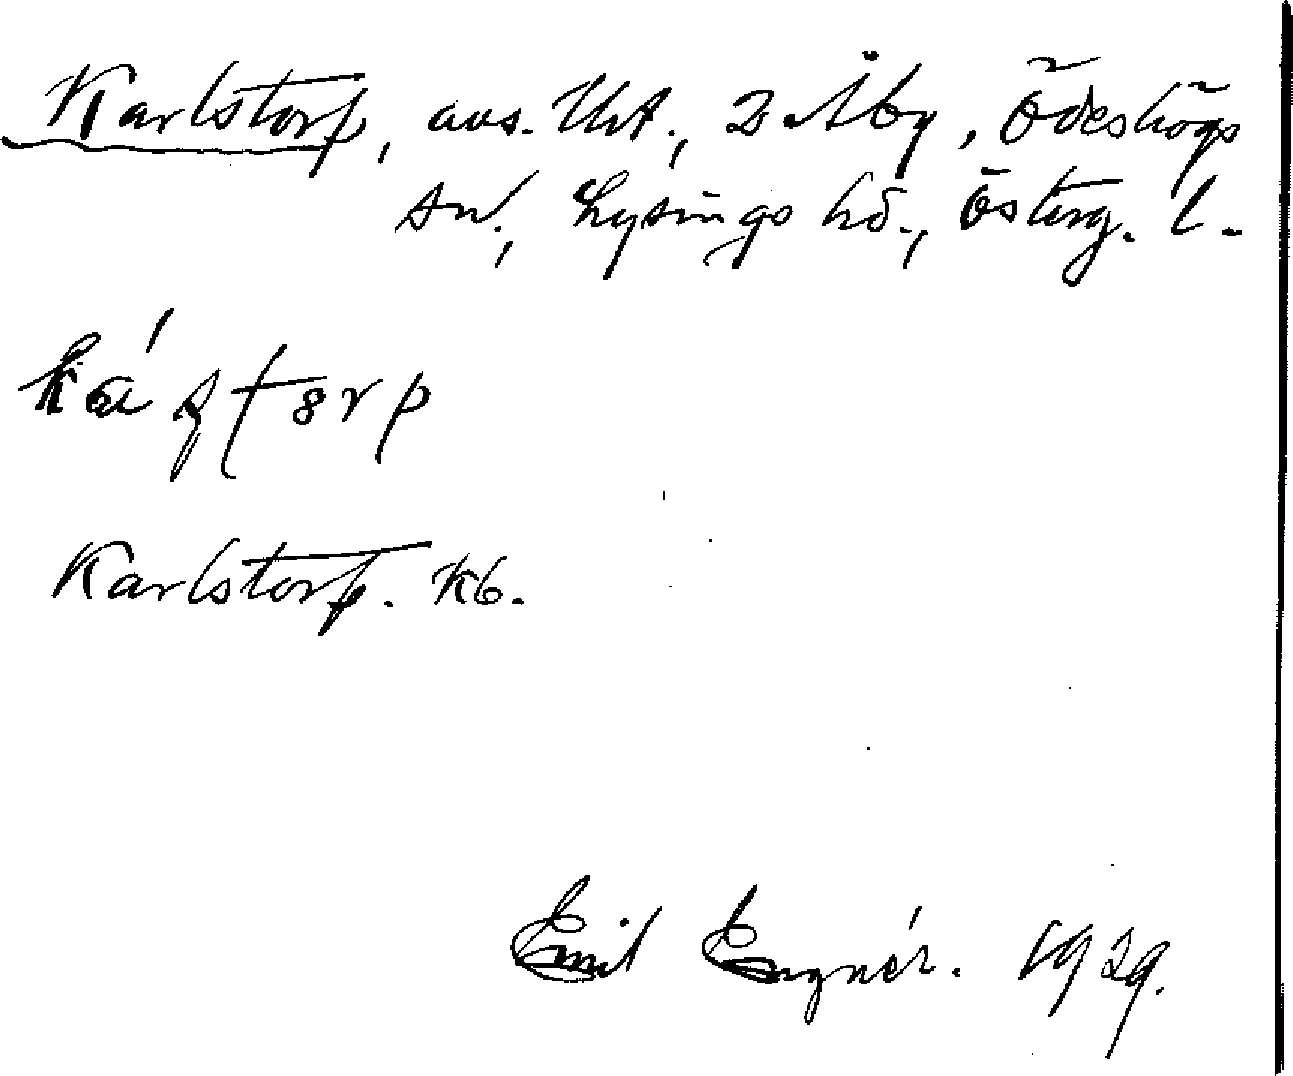 Karlstorp, avs. lht., 2 Åby, Ödeshögs
sn., Lysings hd., Österg. l.
Karlstorp. Kb.
Emil Engnér. 1929.